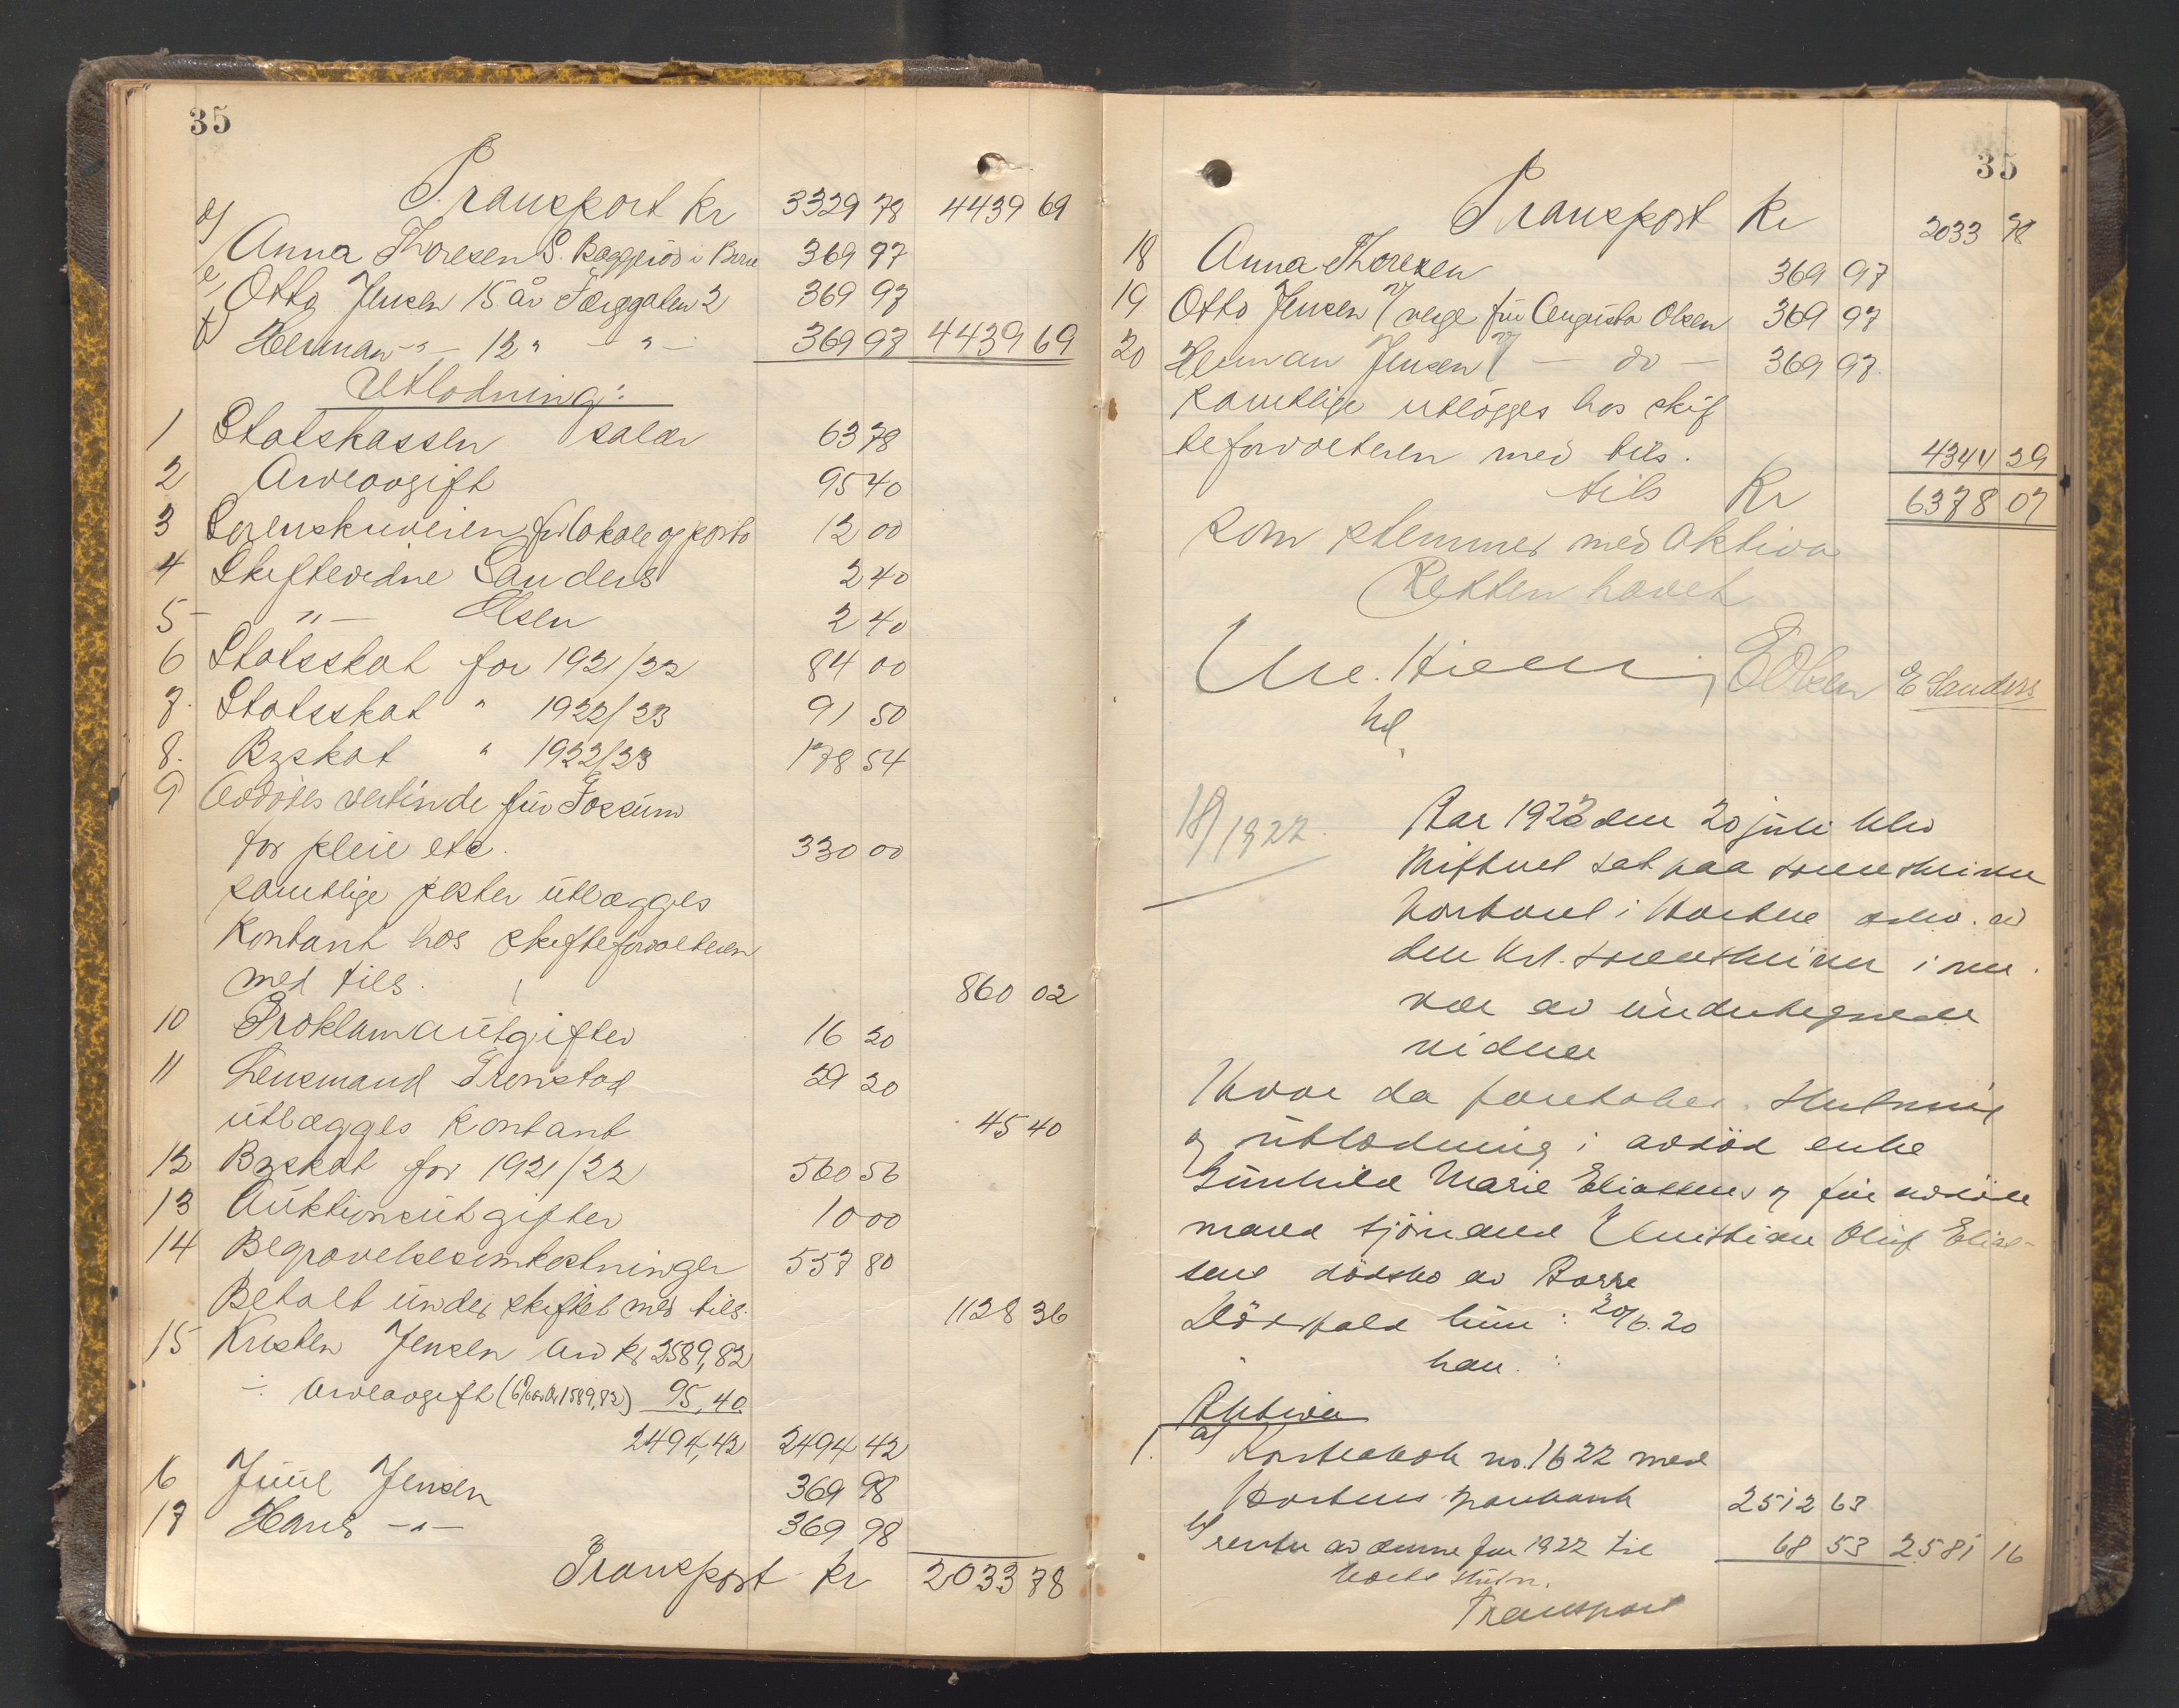 35
Transport kr 3329 78 4439 69
d) Anna Thoresen S. Baggerød i Borre 369 97
e) Otto Jensen 15 år Færggaten 2 369 97
f) Herman -"- 12 " -"- 369 97 4439 69
Utlodning:
1 Statskassen salær 63 78
2 Arveavgift 95 40
3 Sorenskriveren for lokale og porto 12 00
4 Skiftevidne Sanders 2 40
5 -"- Olsen 2 40
6 Statsskat for 1921/22 84 00
7. Statsskat " 1922/23 91 50
8. Byskat " 1922/23 178 54
9 Avdødes vertinde fru Fossum
for pleie etc. 330 00
samtlige poster utlægges
kontant hos skifteforvalteren
med tils. 860 02
10 Proklamautgifter 16 20
11 Lensmand Tronstad 29 20
utlægges kontant 45 40
12 Byskat for 1921/22 560 56
13 Auktionsutgifter 10 00
14 Begravelsesomkostninger 557 80
Betalt under skiftet med tils. 1128 36
15 Kristen Jensen arv kr 2589,82
÷ arveavgift (6% av kr 1589,82) 95,40
2494,42 2494 42
16 Juul Jensen 369 98
17 Hans -"- 369 98
Transport kr 2033 78
35
Transport kr 2033 78
18 Anna Thoresen 369 97
19 Otto Jensen v/ verge fru Augusta Olsen 369 97
20 Herman Jensen v/ - do - 369 97.
samtlige utlægges hos skif
teforvalteren med tils. 4344 29
tils Kr 6378 07
som stemmer med aktiva
Retten hævet
E Olsen E Sanders
18/1922.
Aar 1922 den 20 juli blev
skifteret sat paa sorenskriver
kontoret i Horten adm. av
den kst. sorenskriver i nær
vær av undertegnede
vidner
Hvor da foretokes slutning
og utlodning i avdøde enke
Gunhild Marie Eliassens og før avdøde
mand sjømand Christian Oluf Elias-
sens dødsbo av Borre
Dødsfald hun: 20/6.20
han :
Aktiva
1. a) Kontrabok no. 1622 med
Hortens sparebank 2512 63
b) renter av denne for 1922 til
68 53 2581 16
Transport